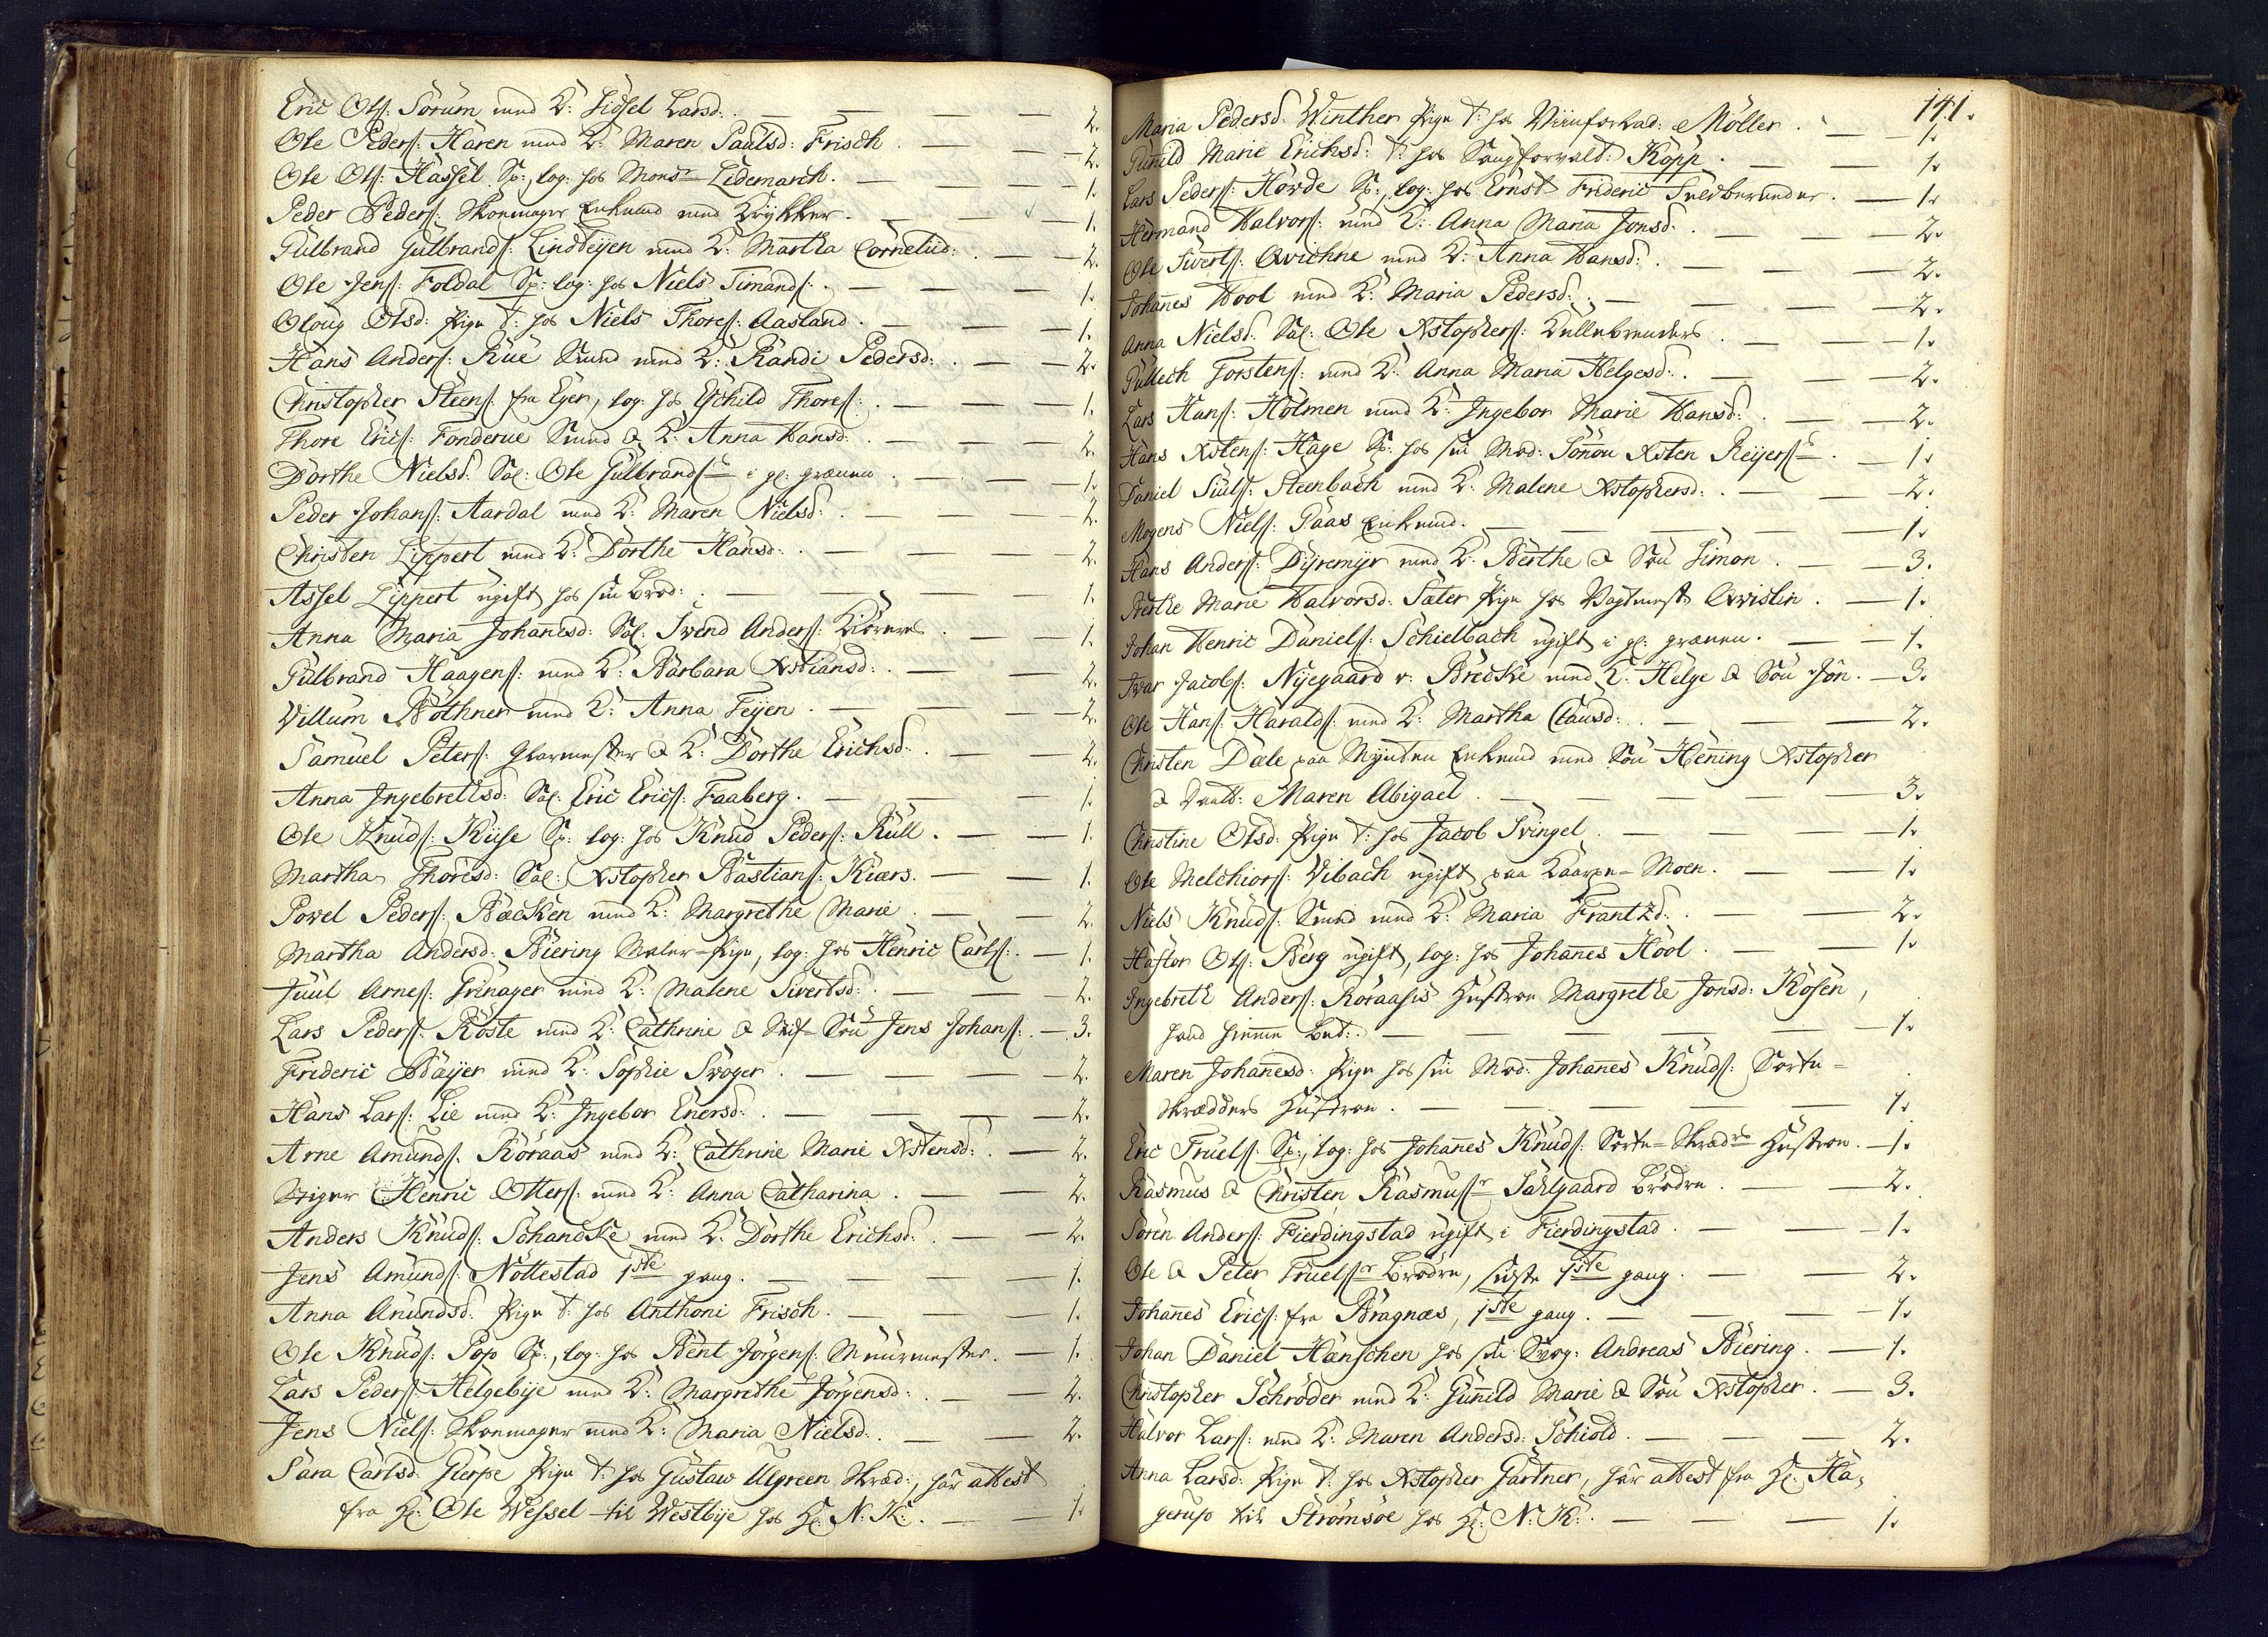 Eric Ols: Sørum med K: Sidsel Larsd: — — — 2.
Ole Peders: Haren med K: Maren Paulsd: Frisch. — — 2.
Ole Ols: Hassel Sp:, log: hos Monsr Ledemarck. — — — 1.
Peder Peders: Skoemager Enkemd med Krykker. — — 1.
Gulbrand Gulbrands: Lindteijen med K: Martha Cornelii d: — 2.
Ole Jens: Foldal Sp: log: hos Niels Simands: — — — 1.
Oloug Olsd: Pige T: hos Niels Thores: Aasland. — — 1.
Hans Anders: Rue Smed med K: Randi Pedersd: — — 2.
Christopher Steens: fra Eger, log: hos Eschild Thores: — — 1.
Thore Erics: Fonderue Smed & K: Anna Hansd: — — 2.
Dorthe Nielsd: Sal: Ole Gulbrands: i gl: grænen. — — 1.
Peder Johans: Aardal med K: Maren Nielsd: — — 2.
Christen Lippert med K: Dorthe Hansd: — — 2.
Assel Lippert ugift hos sin Brod: — — — 1.
Anna Maria Johanesd: Sal: Svend Anders: Kiøreres — 1.
Gulbrand Haagens: med K: Barbara Xstiansd: — — 2.
Villum Bøthner med K: Anna Feijen. — — — 2.
Samuel Peters: Glarmester & K: Dorthe Erichsd: — — 2.
Anna Ingebrethsd: Sal: Eric Erics: Faaberg. — — — 1.
Ole Knuds: Kiise Sp: log: hos Knud Peders: Rull. — — 1.
Martha Thoresd: Sal: Xstopher Bastians: Kiærs. — — 1.
Povel Peders: Bæcken med K: Margrethe Marie. — — 2.
Martha Andersd: Biering Maler-Pige, log: hos Henric Carls: — 1.
Juul Arnes: Grinager med K: Malene Sivertsd: — — 2.
Lars Peders: Røste med K: Cathrine & Stif-Søn Jens Johans: — 3.
Frideric Baijer med K: Sophie Svoger. — — — 2.
Hans Lars: Lie med K: Ingebor Enersd: — — — 2.
Arne Amunds: Røraas med K: Cathrine Marie Xstensd: — 2.
Stiger Henric Otters: med K: Anna Catharina. — — 2.
Anders Knuds: Schancke med K: Dorthe Erichsd: — — 2.
Jens Amunds: Nøttestad 1ste gang. — — — 1.
Anna Amundsd: Pige T: hos Anthoni Frisch. — — — 1.
Ole Knuds: Pop Sp:, log: hos Bent Jørgens: Muurmester. — 1.
Lars Peders: Helgebije med K: Margrethe Jørgensd: — — 2.
Jens Niels: Skoemager med K: Maria Nielsd: — — 2.
Sara Carlsd: Gierpe Pige T: hos Gustaw Ulgreen Skræd:, har attest
fra Hr: Ole Wessel til Westbije hos Hr: N: K: — — 1.
141.
Maria Pedersd: Winther Pige T: hos Viinforvad: Møller. — 1.
Gunild Marie Erichsd: T: hos Saugforvalt: Køpp. — — 1.
Lars Peders: Hovde Sp:, log: hos Ernst Frideric Sølvbrænder. — 1.
Hermand Halvors: med K: Anna Maria Jonsd: — — 2.
Ole Siverts: Qvichne med K: Anna Hansd: — — — 2.
Johanes Hool med K: Maria Pedersd: — — — 2.
Anna Nielsd: Sal: Ole Xstophers: Kullebrenders. — — 1.
Gullech Torstens: med K: Anna Maria Helgesd: — — 2.
Lars Hans: Holmen med K: Ingebor Marie Hansd: — — 2.
Hans Xstens: Hage Sp: hos sin Mod: Sønon Xsten Reijers: — 1.
Daniel Siuls: Steenbach med K: Malene Xstophersd: — — 2.
Mogens Niels: Paas Enkemd. — — — 1.
Hans Anders: Dijremyr med K: Berthe & Søn Simon. — — 3.
Berthe Marie Halvorsd: Sæter Pige hos Vagtmest: Qvislin. — 1.
Johan Henric Daniels: Schielbach ugift i gl: grænen. — — 1.
Ivar Jacobs: Nijegaard v: Bredske med K: Helge & Søn Jon. — 3.
Ole Hans: Haralds: med K: Martha Clausd: — — 2.
Christen Dæle paa Mynten Enkemd med Søn Hening Xstopher
& Datt: Maren Abigael. — — — 3.
Christine Olsd: Pige T: hos Jacob Svingel. — — — 1.
Ole Melchiors: Vibach ugift paa Kaarpe-Moen. — — 1.
Niels Knuds: Smed med K: Maria Frantzd: — — 2.
Haftor Ols: Berg ugift, log: hos Johanes Hool. — — 1.
Ingebreth Anders: Røraasis Hustroe Margrethe Jonsd: Kosen,
hand hiemme Bet: — — — 1.
Maren Johanesd: Pige hos sin Mod: Johanes Knuds: Sorte-
Skrædders Hustroe. — — — 1.
Eric Truels: Sp:, log: hos Johanes Knuds: Sorte-Skrædrs Hustroe. — 1.
Rasmus & Christen Rasmusr Sahlgaard Brødre. — — 2.
Søren Anders: Fierdingstad ugift i Fierdingstad. — — 1.
Ole & Peter Truelsr Brødre, sidste 1ste gang. — — 2.
Johanes Erics: fra Bragnæs, 1ste gang. — — — 1.
Johan Daniel Hanschen hos sin Svog: Andreas Biering. — 1.
Christopher Schrøder med K: Gunild Marie & Søn Xstopher. — 3.
Halvor Lars: med K: Maren Andersd: Schiold. — — — 2.
Anna Larsd: Pige T: hos Xstopher Gartner, har attest fra Hr: Ha-
gerup til Strømsøe hos Hr: N: K: — — — 1.